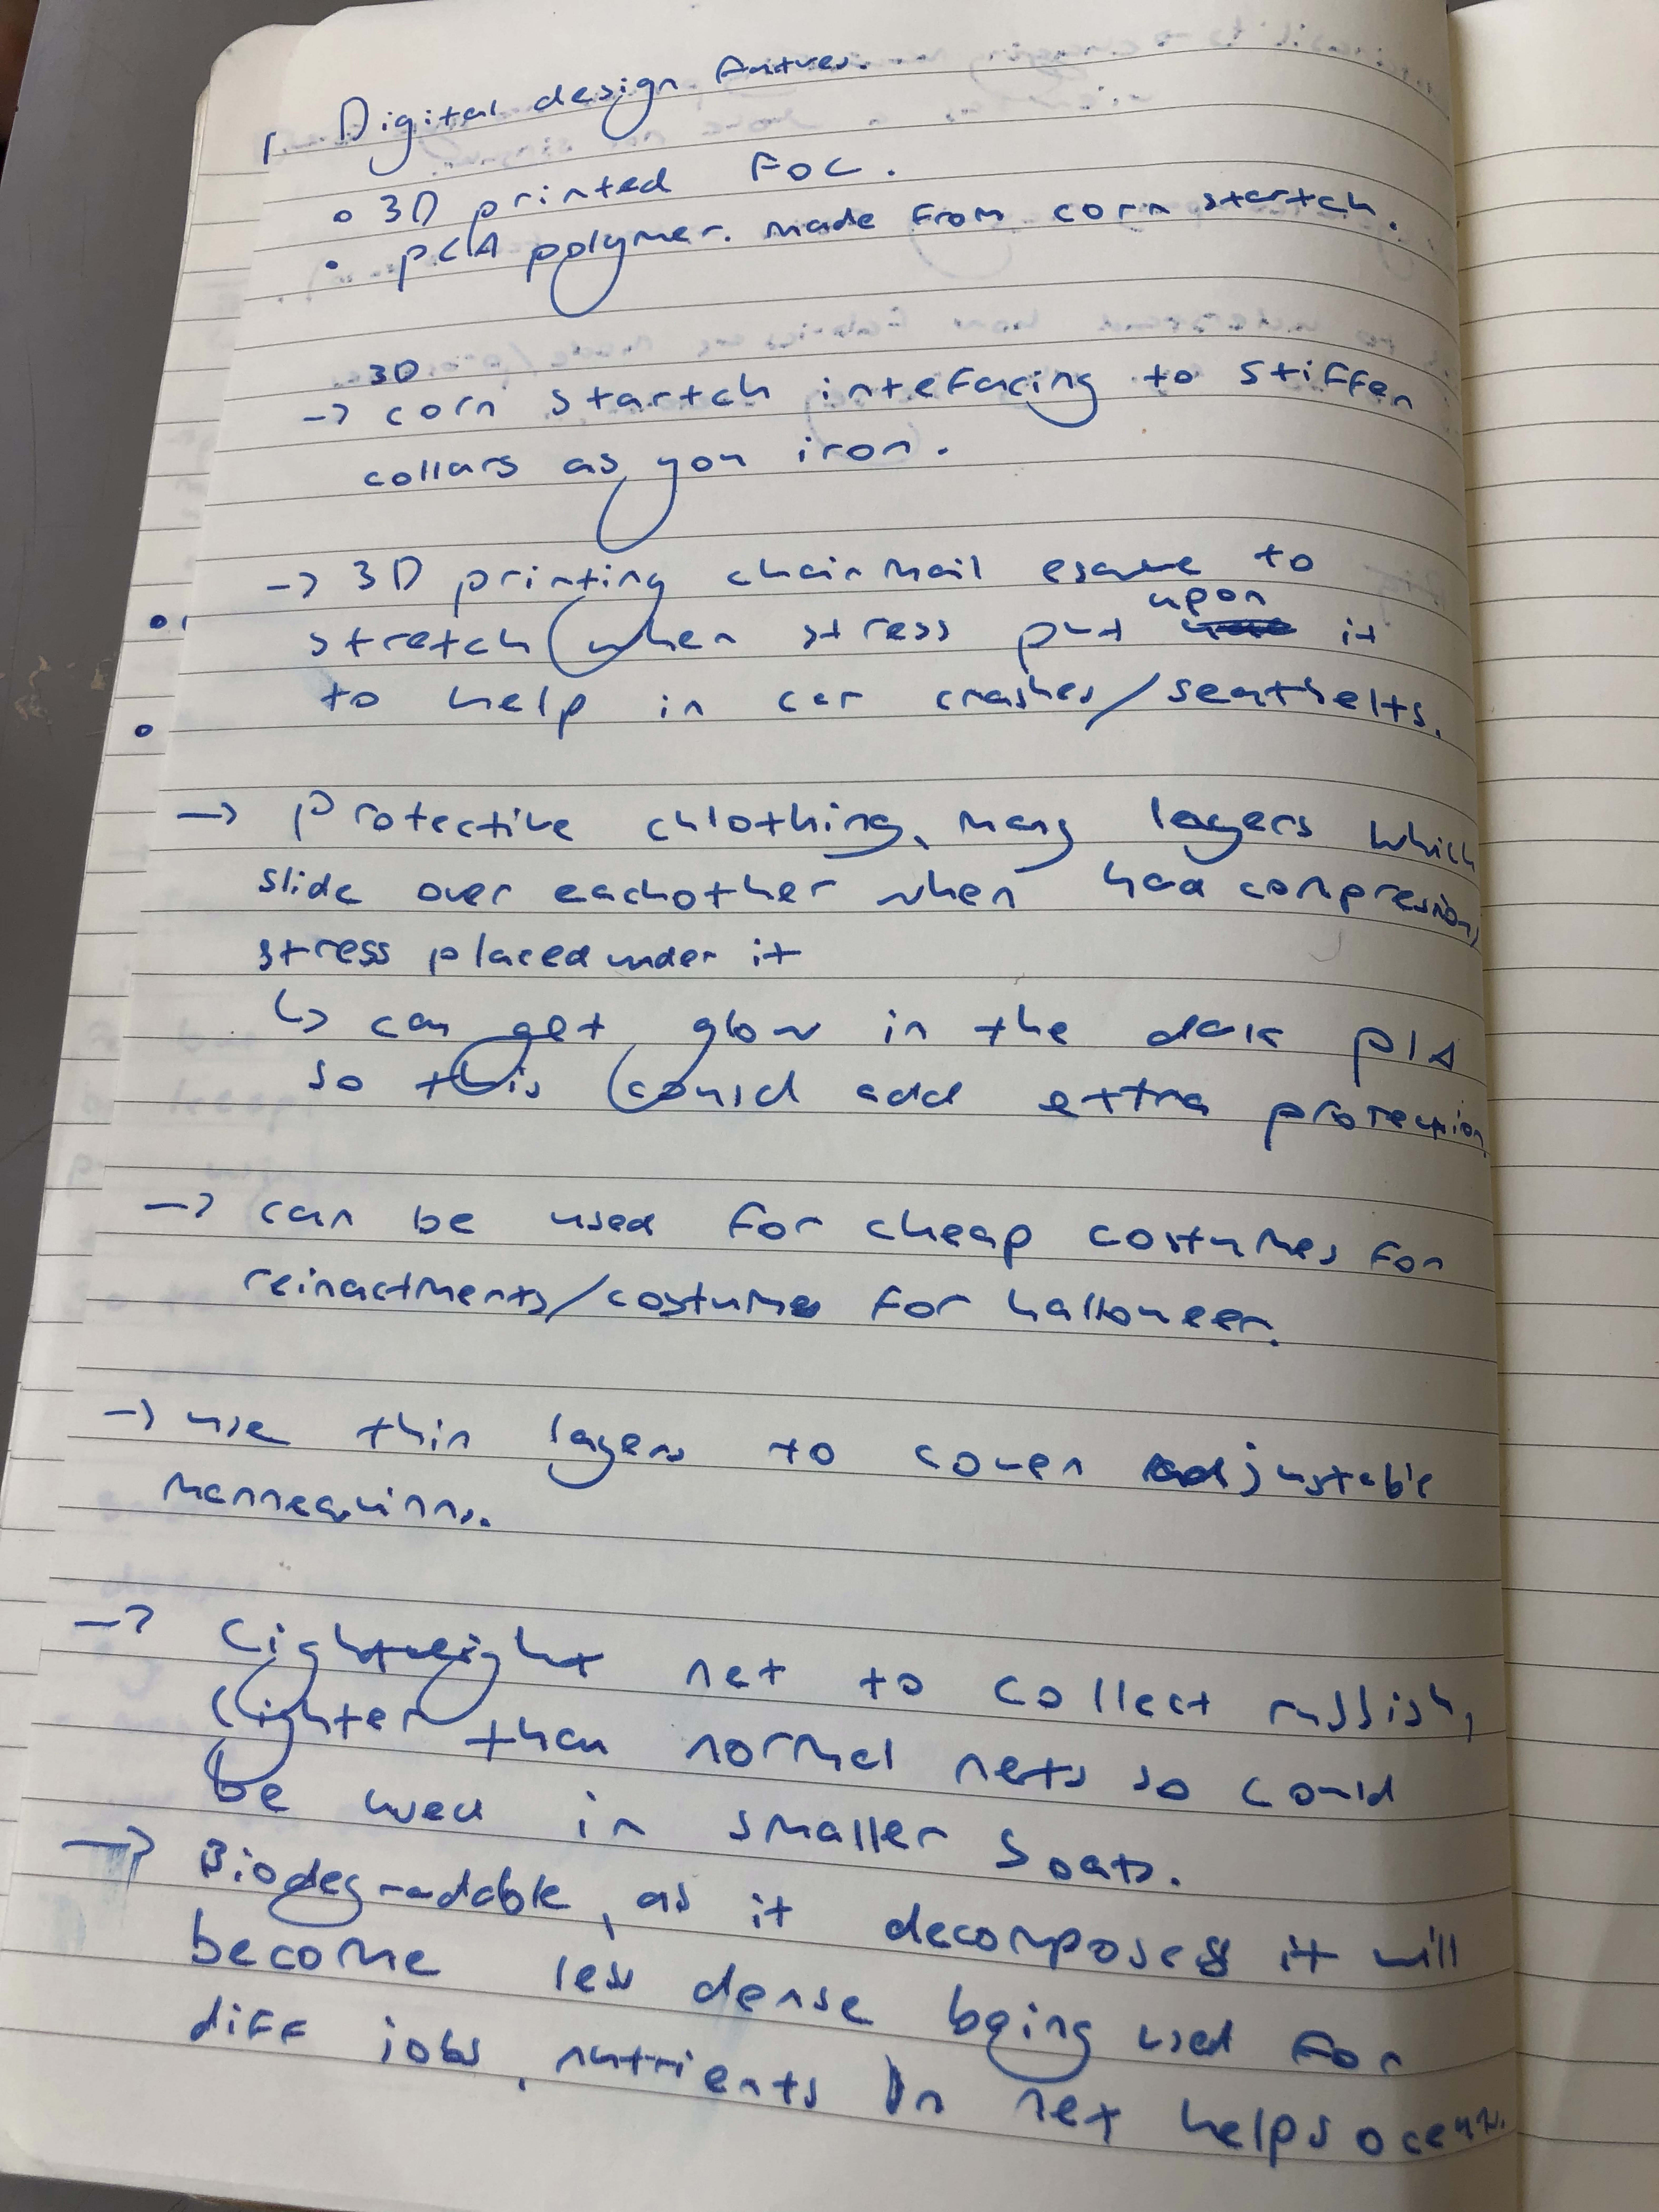 Digital design
• 3D printed FOC.
• PLA polymer. made from corn startch.
3D
→ corn startch intefacing to stiffen
collars as you iron.
→ 3D printing chainmail esque to
upon
stretch when stress put it
to help in car crashes/seatbelts.
→ Protective chlothing, many layers which
slide over eachother when had compression,
stress placed under it
↳ can get glow in the dark PLA
so this could add extra protection
→ can be used for cheap costumes for
reinactments/costume for halloween.
→ use thin layers to cover adjustable
mannequinns.
→ Lightweight net to collect rubbish,
lighter than normal nets so could
be used in smaller boats.
→ Biodegradable, as it decomposes it will
become less dense being used for
diff jobs, nutrients in net helps ocean.